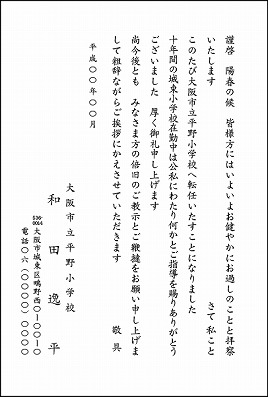 謹啓　陽春の候　皆様方にはいよいよお健やかにお過しのことと拝察
いたします　　さて 私こと
このたび大阪市立平野小学校へ転任いたすことになりました
十年間の城東小学校在勤中は公私にわたり何かとご指導を賜りありがとう
ございました　厚く御礼申し上げます
尚今後とも　みなさま方の倍旧のご教示とご鞭撻をお願い申し上げま
して粗辞ながらご挨拶にかえさせていただきます　　敬具
平成〇〇年〇〇月
大阪市立平野小学校
和田逸平
536-0014 大阪市城東区鴫野西〇-〇〇-〇
電話〇六（〇〇〇〇）〇〇〇〇